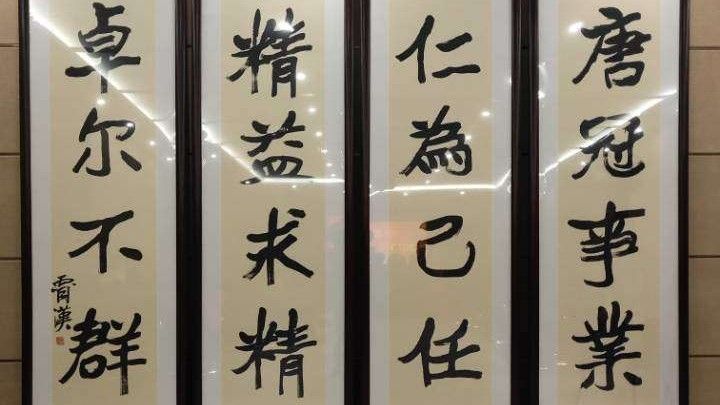 唐冠事業
仁為己任
精益求精
卓尔不群
霄漢